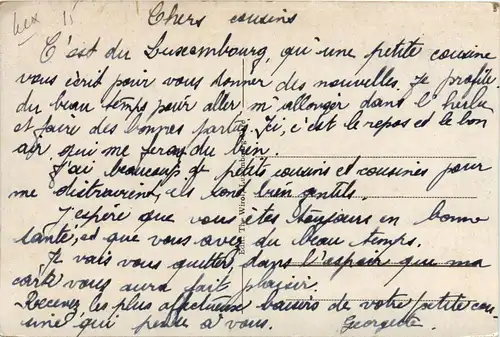 Lux
Chers cousins
C'est du Luxembourg, qu'une petite cousine
vous écrit pour vous donner des nouvelles. Je profite
du beau temps pour aller m'allonger dans l'herbe
et faire des bonnes parties. Ici, c'est le repos et le bon
air qui me feront du bien.
J'ai beaucoup de petits cousins et cousines pour
me distraire, ils sont bien gentils.
J'espère que vous êtes toujours en bonne
santé, et que vous avez du beau temps.
Je vais vous quitter, dans l'espoir que ma
carte vous aura fait plaisir.
Recevez les plus affectueux baisers de votre petite cou-
sine qui pense à vous. Georgette.